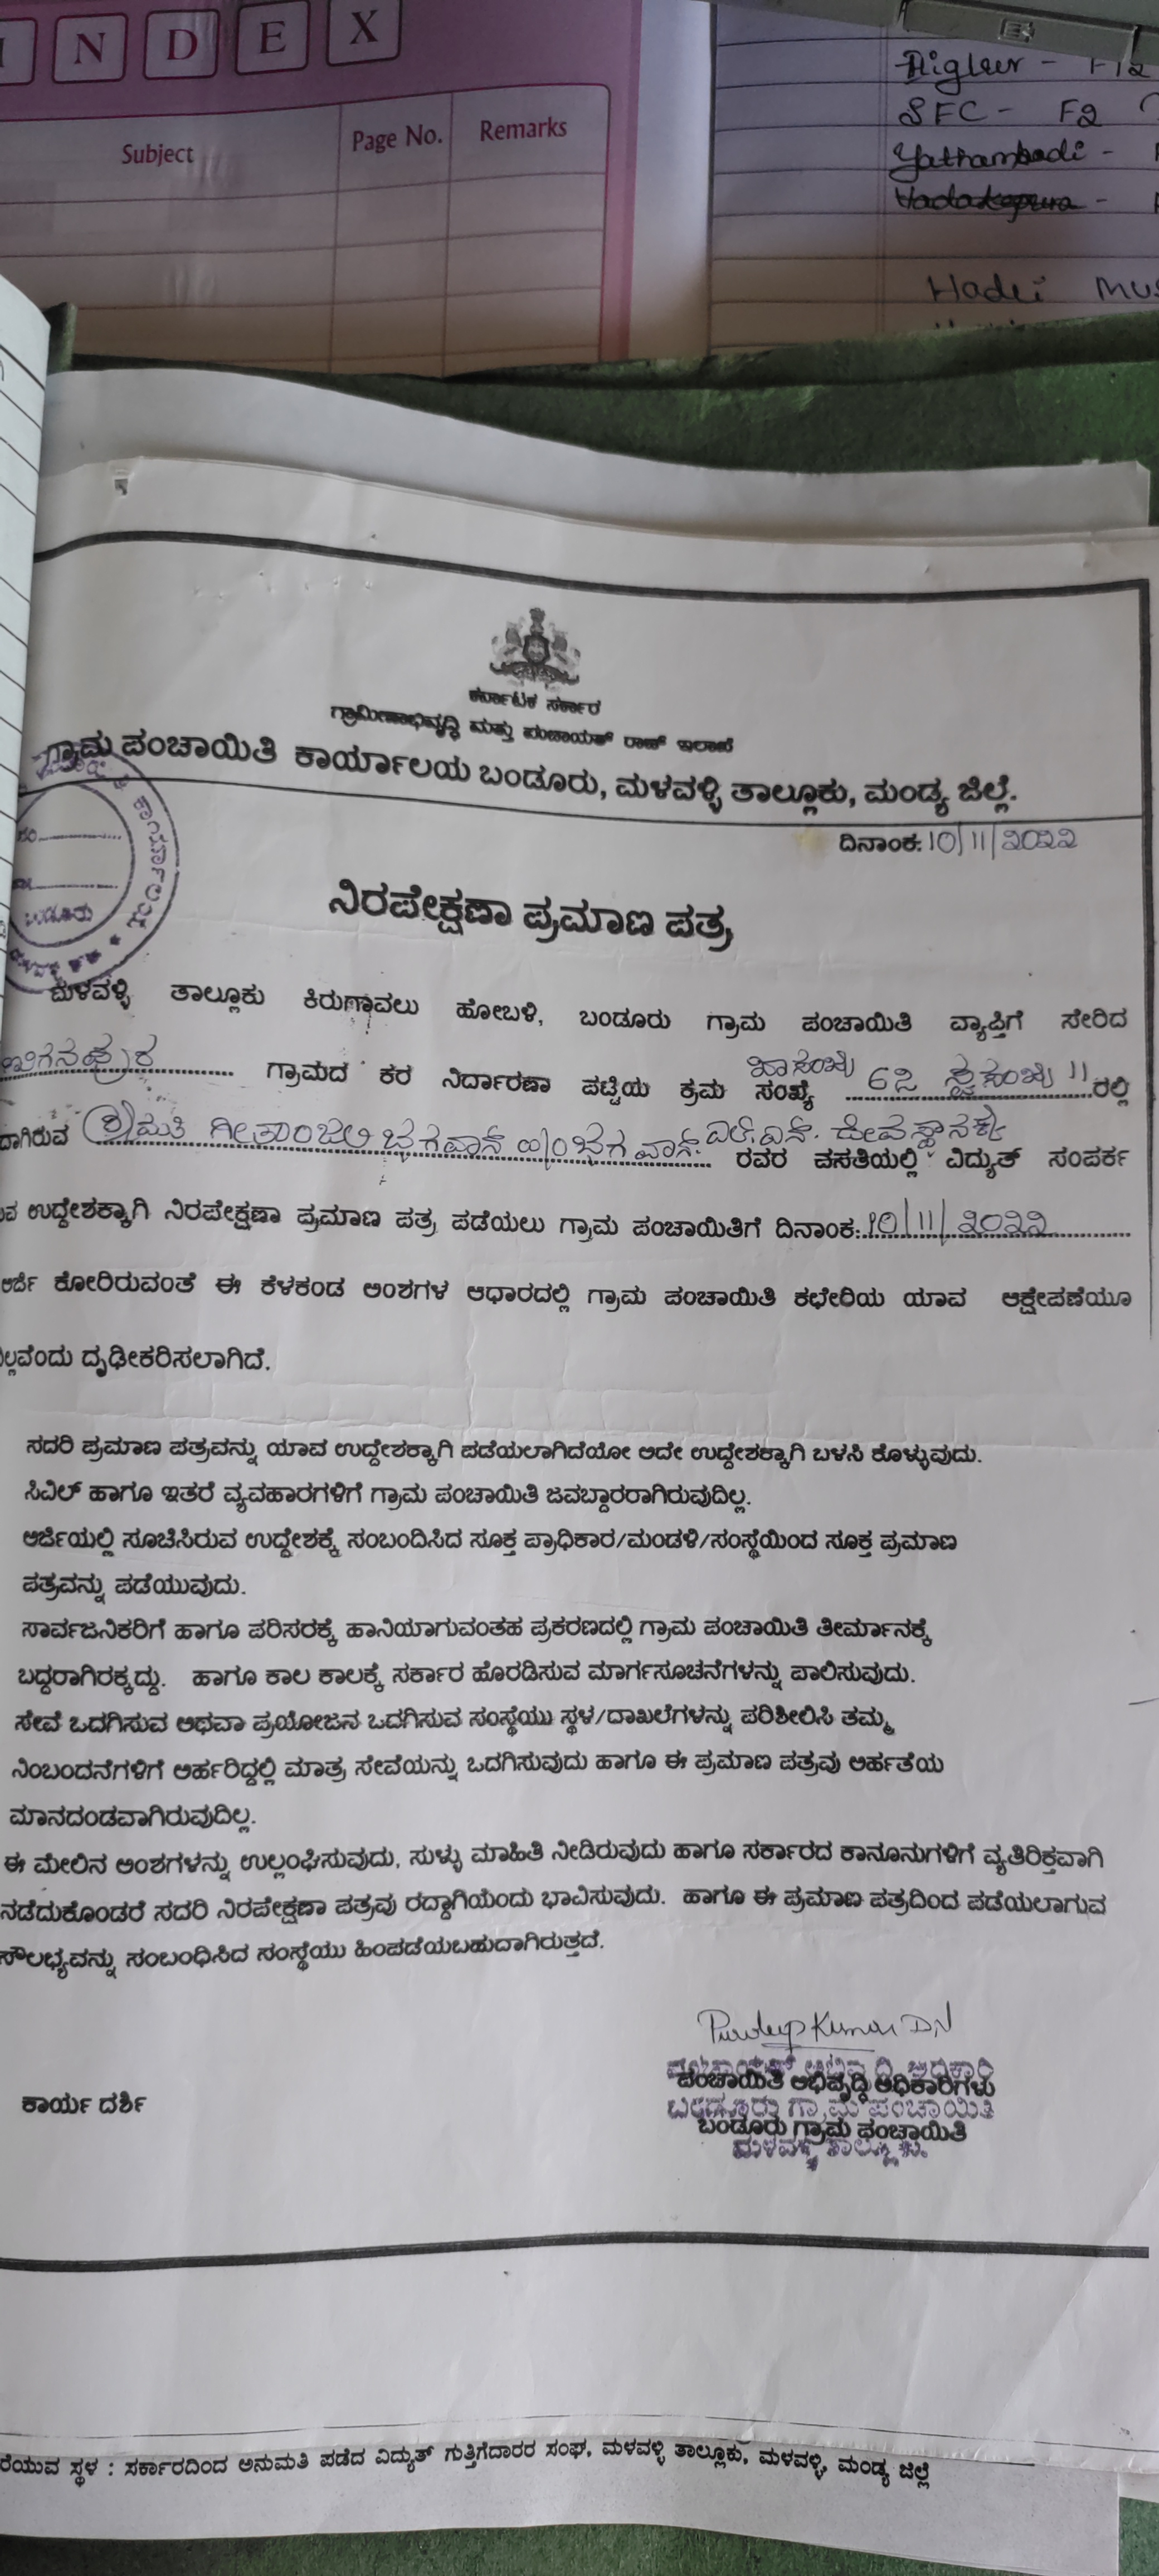 I N D E X
Subject Page No. Remarks
SFC - F2
Yathambadi -
Hadli
ಕರ್ನಾಟಕ ಸರ್ಕಾರ
ಗ್ರಾಮೀಣಾಭಿವೃದ್ಧಿ ಮತ್ತು ಪಂಚಾಯತ್ ರಾಜ್ ಇಲಾಖೆ
ಗ್ರಾಮ ಪಂಚಾಯಿತಿ ಕಾರ್ಯಾಲಯ ಬಂಡೂರು, ಮಳವಳ್ಳಿ ತಾಲ್ಲೂಕು, ಮಂಡ್ಯ ಜಿಲ್ಲೆ.
ದಿನಾಂಕ: 10/11/೨೦೨೨
ಕಾರ್ಯಾಲಯ
ಬಂಡೂರು
ನಿರಪೇಕ್ಷಣಾ ಪ್ರಮಾಣ ಪತ್ರ
ಮಳವಳ್ಳಿ ತಾಲ್ಲೂಕು ಕಿರುಗಾವಲು ಹೋಬಳಿ, ಬಂಡೂರು ಗ್ರಾಮ ಪಂಚಾಯಿತಿ ವ್ಯಾಪ್ತಿಗೆ ಸೇರಿದ
ಗ್ರಾಮದ ಕರ ನಿರ್ದಾರಣಾ ಪಟ್ಟಿಯ ಕ್ರಮ ಸಂಖ್ಯೆ 11 ರಲ್ಲಿ
ದಾಗಿರುವ ಶ್ರೀಮತಿ ಗೀತಾಂಜಲಿ ಭಗವಾನ್ ಎಲ್.ಎನ್. ರವರ ವಸತಿಯಲ್ಲಿ ವಿದ್ಯುತ್ ಸಂಪರ್ಕ
ಉದ್ದೇಶಕ್ಕಾಗಿ ನಿರಪೇಕ್ಷಣಾ ಪ್ರಮಾಣ ಪತ್ರ ಪಡೆಯಲು ಗ್ರಾಮ ಪಂಚಾಯಿತಿಗೆ ದಿನಾಂಕ: 10/11/೨೦೨೨
ಅರ್ಜಿ ಕೋರಿರುವಂತೆ ಈ ಕೆಳಕಂಡ ಅಂಶಗಳ ಆಧಾರದಲ್ಲಿ ಗ್ರಾಮ ಪಂಚಾಯಿತಿ ಕಛೇರಿಯ ಯಾವ ಆಕ್ಷೇಪಣೆಯೂ
ಲ್ಲವೆಂದು ದೃಢೀಕರಿಸಲಾಗಿದೆ.
ಸದರಿ ಪ್ರಮಾಣ ಪತ್ರವನ್ನು ಯಾವ ಉದ್ದೇಶಕ್ಕಾಗಿ ಪಡೆಯಲಾಗಿದೆಯೋ ಅದೇ ಉದ್ದೇಶಕ್ಕಾಗಿ ಬಳಸಿ ಕೊಳ್ಳುವುದು.
ಸಿವಿಲ್ ಹಾಗೂ ಇತರೆ ವ್ಯವಹಾರಗಳಿಗೆ ಗ್ರಾಮ ಪಂಚಾಯಿತಿ ಜವಬ್ದಾರರಾಗಿರುವುದಿಲ್ಲ.
ಅರ್ಜಿಯಲ್ಲಿ ಸೂಚಿಸಿರುವ ಉದ್ದೇಶಕ್ಕೆ ಸಂಬಂದಿಸಿದ ಸೂಕ್ತ ಪ್ರಾಧಿಕಾರ/ಮಂಡಳಿ/ಸಂಸ್ಥೆಯಿಂದ ಸೂಕ್ತ ಪ್ರಮಾಣ
ಪತ್ರವನ್ನು ಪಡೆಯುವುದು.
ಸಾರ್ವಜನಿಕರಿಗೆ ಹಾಗೂ ಪರಿಸರಕ್ಕೆ ಹಾನಿಯಾಗುವಂತಹ ಪ್ರಕರಣದಲ್ಲಿ ಗ್ರಾಮ ಪಂಚಾಯಿತಿ ತೀರ್ಮಾನಕ್ಕೆ
ಬದ್ದರಾಗಿರಕ್ಕದ್ದು. ಹಾಗೂ ಕಾಲ ಕಾಲಕ್ಕೆ ಸರ್ಕಾರ ಹೊರಡಿಸುವ ಮಾರ್ಗಸೂಚನೆಗಳನ್ನು ಪಾಲಿಸುವುದು.
ಸೇವೆ ಒದಗಿಸುವ ಅಥವಾ ಪ್ರಯೋಜನ ಒದಗಿಸುವ ಸಂಸ್ಥೆಯು ಸ್ಥಳ/ದಾಖಲೆಗಳನ್ನು ಪರಿಶೀಲಿಸಿ ತಮ್ಮ
ನಿಂಬಂದನೆಗಳಿಗೆ ಅರ್ಹರಿದ್ದಲ್ಲಿ ಮಾತ್ರ ಸೇವೆಯನ್ನು ಒದಗಿಸುವುದು ಹಾಗೂ ಈ ಪ್ರಮಾಣ ಪತ್ರವು ಅರ್ಹತೆಯ
ಮಾನದಂಡವಾಗಿರುವುದಿಲ್ಲ.
ಈ ಮೇಲಿನ ಅಂಶಗಳನ್ನು ಉಲ್ಲಂಘಿಸುವುದು, ಸುಳ್ಳು ಮಾಹಿತಿ ನೀಡಿರುವುದು ಹಾಗೂ ಸರ್ಕಾರದ ಕಾನೂನುಗಳಿಗೆ ವ್ಯತಿರಿಕ್ತವಾಗಿ
ನಡೆದುಕೊಂಡರೆ ಸದರಿ ನಿರಪೇಕ್ಷಣಾ ಪತ್ರವು ರದ್ದಾಗಿಯೆಂದು ಭಾವಿಸುವುದು. ಹಾಗೂ ಈ ಪ್ರಮಾಣ ಪತ್ರದಿಂದ ಪಡೆಯಲಾಗುವ
ಸೌಲಭ್ಯವನ್ನು ಸಂಬಂಧಿಸಿದ ಸಂಸ್ಥೆಯು ಹಿಂಪಡೆಯಬಹುದಾಗಿರುತ್ತದೆ.
Pradeep Kumar D.N
ಕಾರ್ಯ ದರ್ಶಿ
ಪಂಚಾಯಿತಿ ಅಭಿವೃದ್ಧಿ ಅಧಿಕಾರಿಗಳು
ಬಂಡೂರು ಗ್ರಾಮ ಪಂಚಾಯಿತಿ
ರೆಯುವ ಸ್ಥಳ : ಸರ್ಕಾರದಿಂದ ಅನುಮತಿ ಪಡೆದ ವಿದ್ಯುತ್ ಗುತ್ತಿಗೆದಾರರ ಸಂಘ, ಮಳವಳ್ಳಿ ತಾಲ್ಲೂಕು, ಮಳವಳ್ಳಿ, ಮಂಡ್ಯ ಜಿಲ್ಲೆ